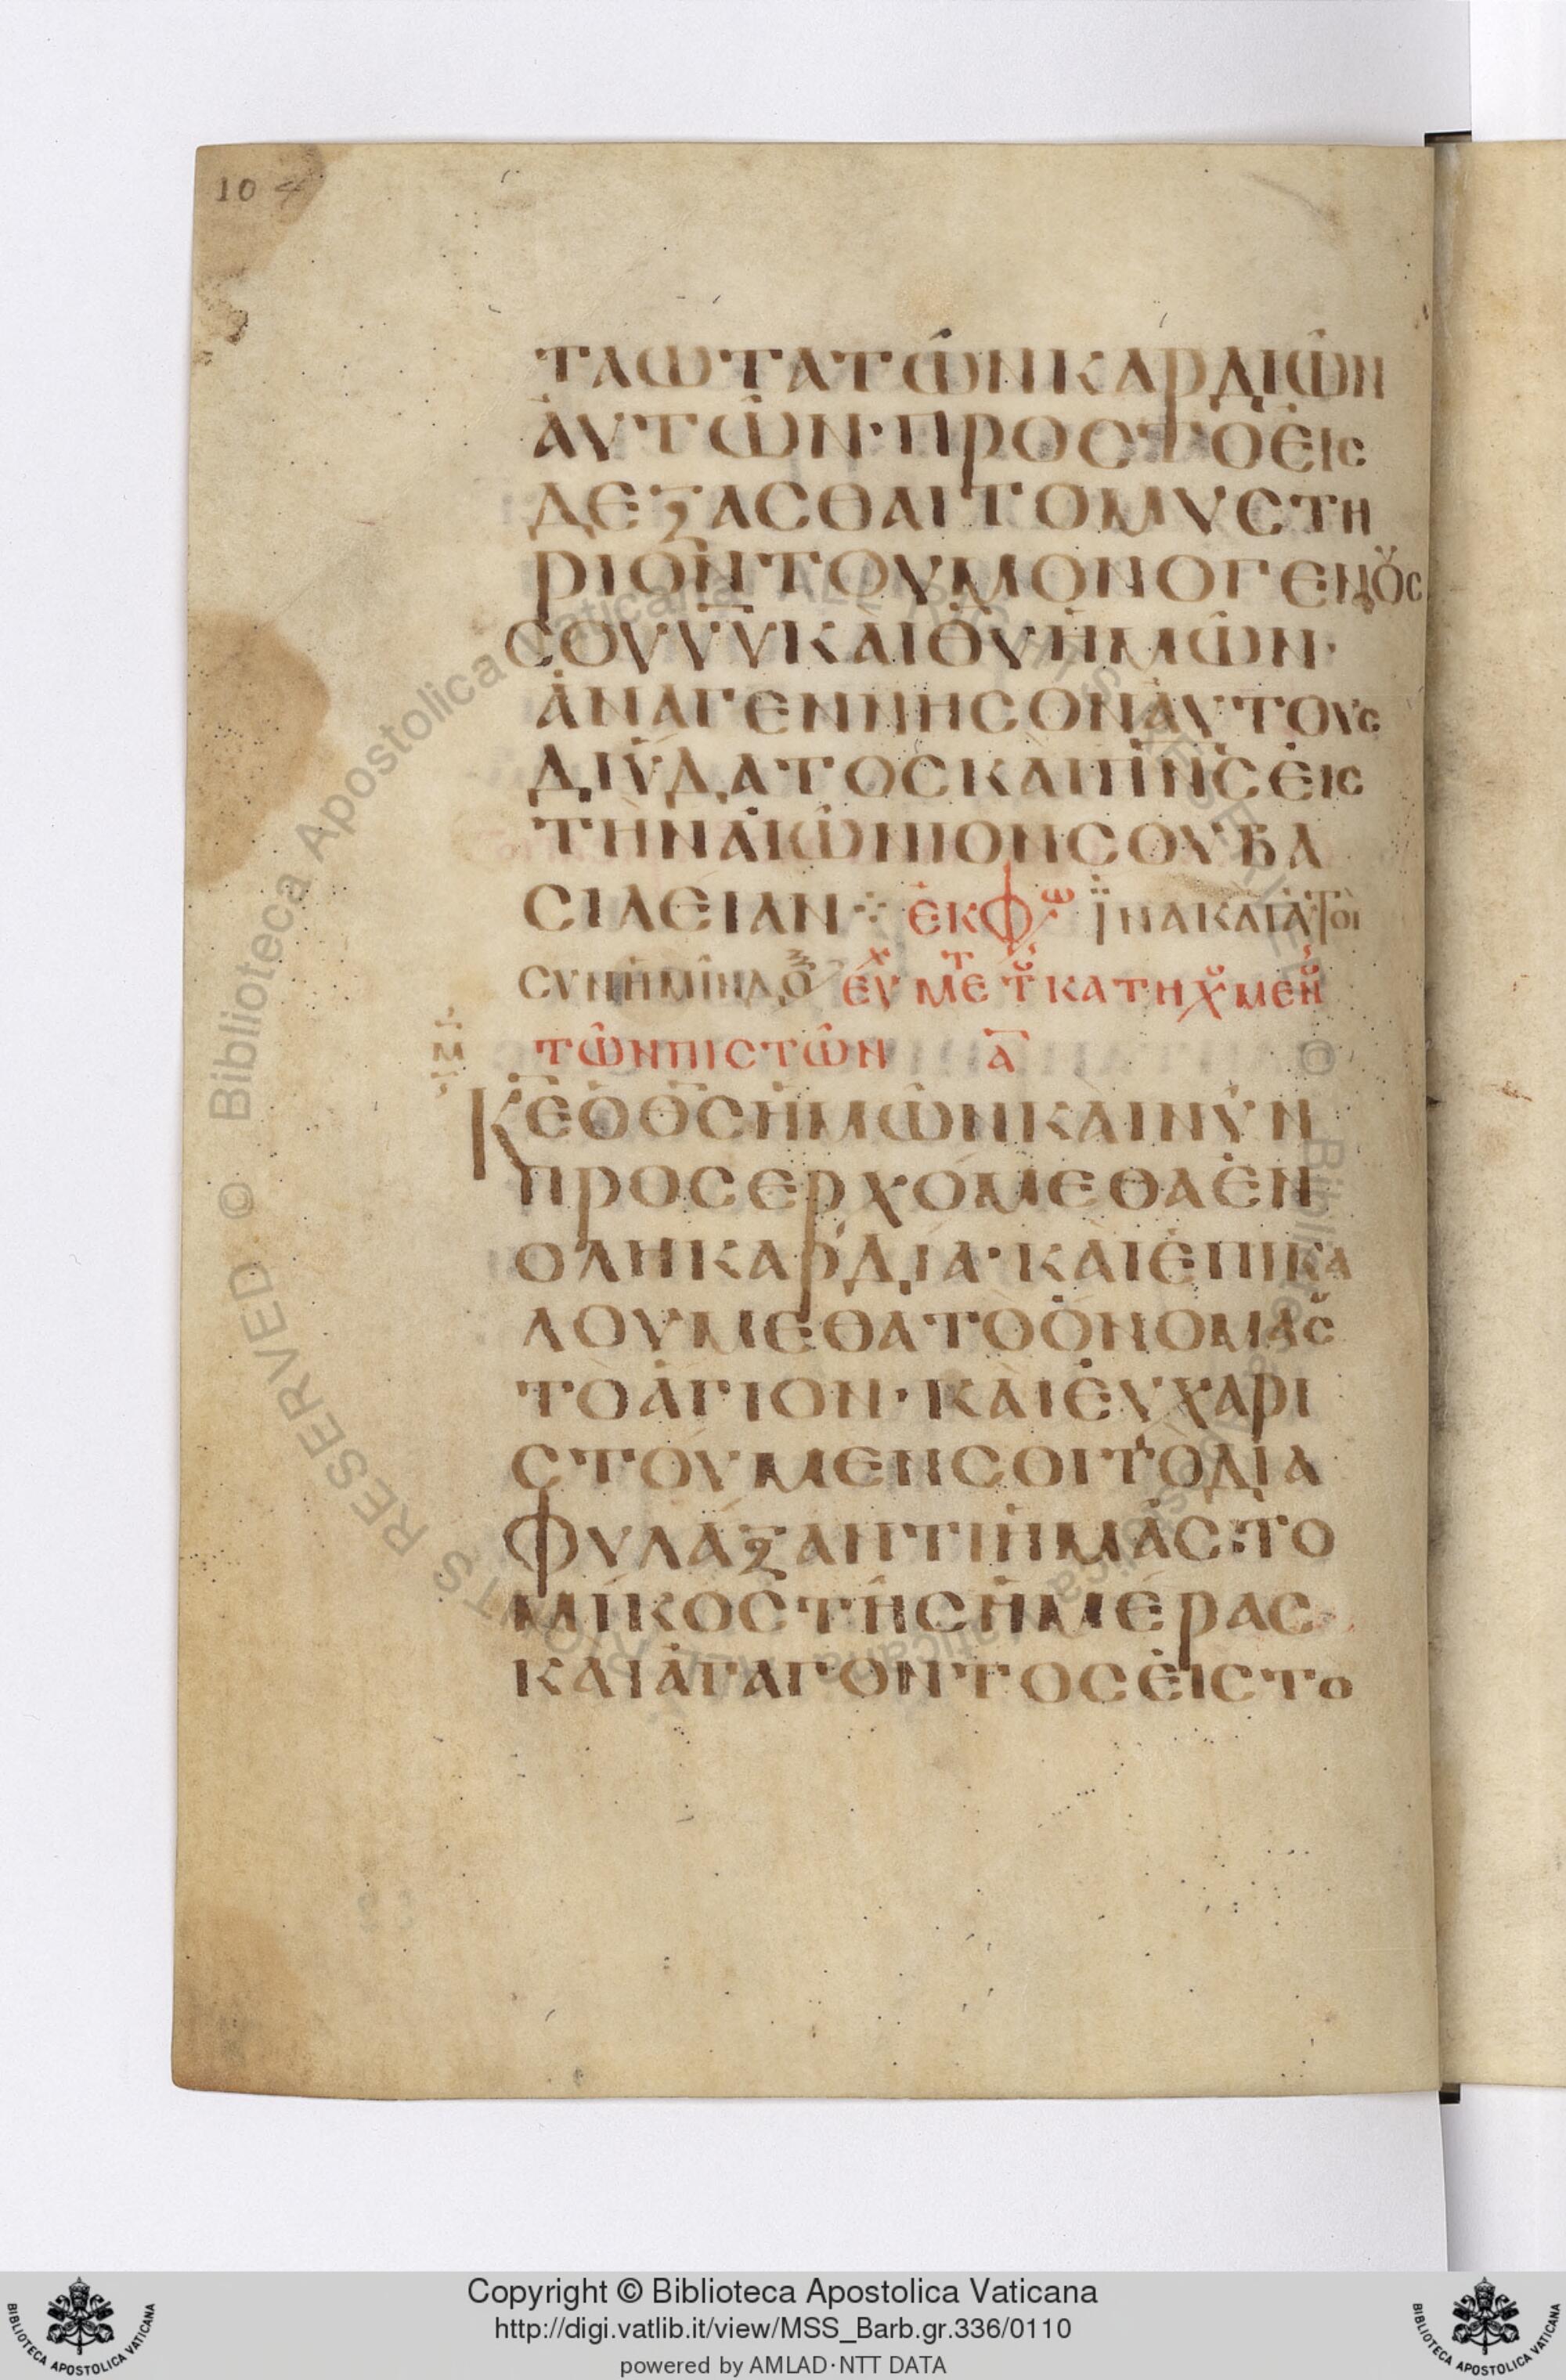 104
ΤΑ ὦΤΑ ΤῶΝ ΚΑΡΔΙῶΝ
ἀΥΤῶΝ· ΠΡΟΣ ΤΟ ΕἰΣ
ΔΕΞΑΣΘΑΙ ΤΟ ΜΥΣΤΗ
ΡΙΟΝ ΤΟΥ ΜΟΝΟΓΕΝΟῦΣ
ΣΟΥ Υ̅Υ̅ ΚΑὶ Θ̅Υ̅ ἡΜῶΝ·
ἀΝΑΓΕΝΝΗΣΟΝ ἀΥΤΟΥΣ
ΔΙ ὕΔΑΤΟΣ ΚΑΙ Π̅Ν̅Σ̅ ΕἰΣ
ΤὴΝ ΑἰώΝΙΟΝ ΣΟΥ ΒΑ
ΣΙΛΕΙΑΝ ἐΚΦω ἵΝΑ ΚΑΙ ΑΤΟΙ
ΣΥΝ ἡΜῖΝ ΔΟξ ΕὐΧ ΜΕΤ ΤΟΥ ΚΑΤΗΧΟΥΜΕΝ
ΤῶΝ ΠΙΣΤῶΝ Α̅
Μ
Κ̅Ε̅ ὁ Θ̅Σ̅ ἡΜῶΝ ΚΑὶ ΝῦΝ
ΠΡΟΣΕΡΧΟΜΕΘΑ ἐΝ
ΟΛΗ ΚΑΡΔίΑ· ΚΑὶ ἐΠΙΚΑ
ΛΟΥΜΕΘΑ ΤΟ ὄΝΟΜΑ Σ
ΤΟ ἅΓΙΟΝ· ΚΑὶ ΕὐΧΑΡΙ
ΣΤΟῦΜΕΝ ΣΟΙ Τῶ ΔΙΑ
ΦΥΛΑΞΑΝΤΙ ἡΜᾶΣ· ΤΟ
ΜΙΚΟΣ ΤῆΣ ἡΜέΡΑΣ
ΚΑΙ ἀΓΑΓΟΝΤΟΣ ΕἰΣ ΤΟ
Copyright © Biblioteca Apostolica Vaticana
http://digi.vatlib.it/view/MSS_Barb.gr.336/0110
powered by AMLAD·NTT DATA